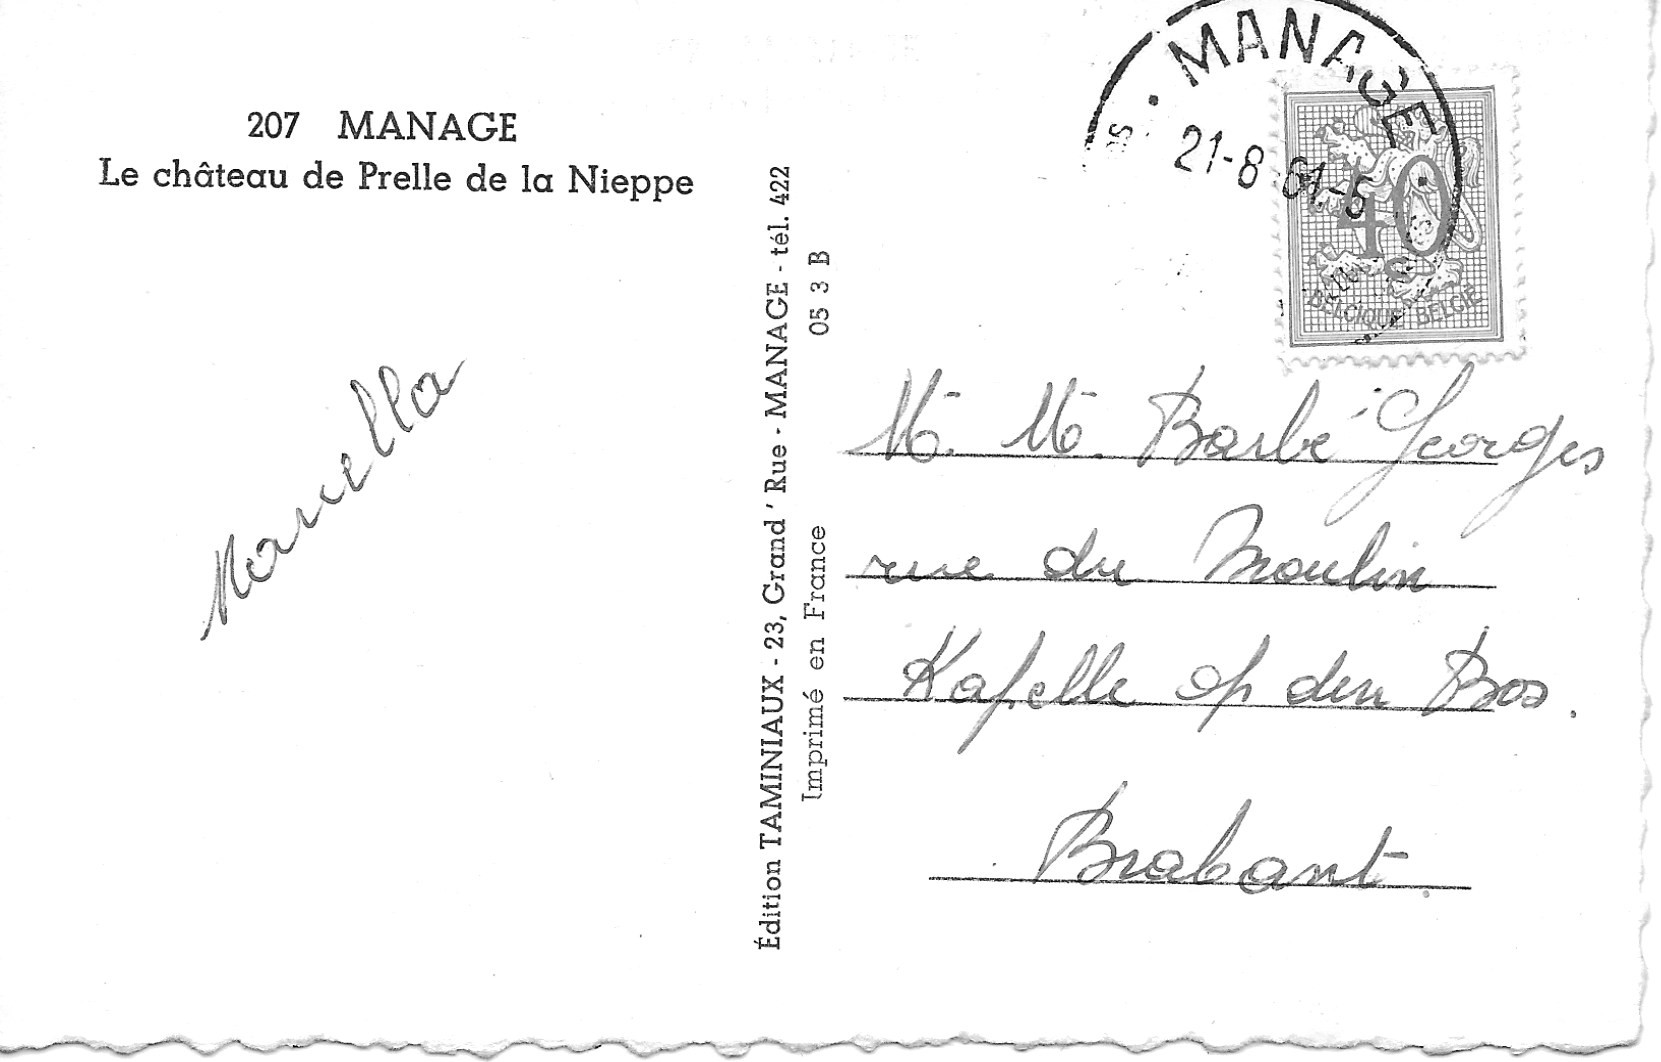 207 MANAGE
Le château de Prelle de la Nieppe
Marcella
Édition TAMINIAUX - 23, Grand'Rue - MANAGE - tél. 422
Imprimé en France
05 3 B
MANAGE
21-8 61-5
40
BELGIQUE BELGIË
M. M. Barbé Georges
rue du Moulin
Kapelle op den Bos.
Brabant.